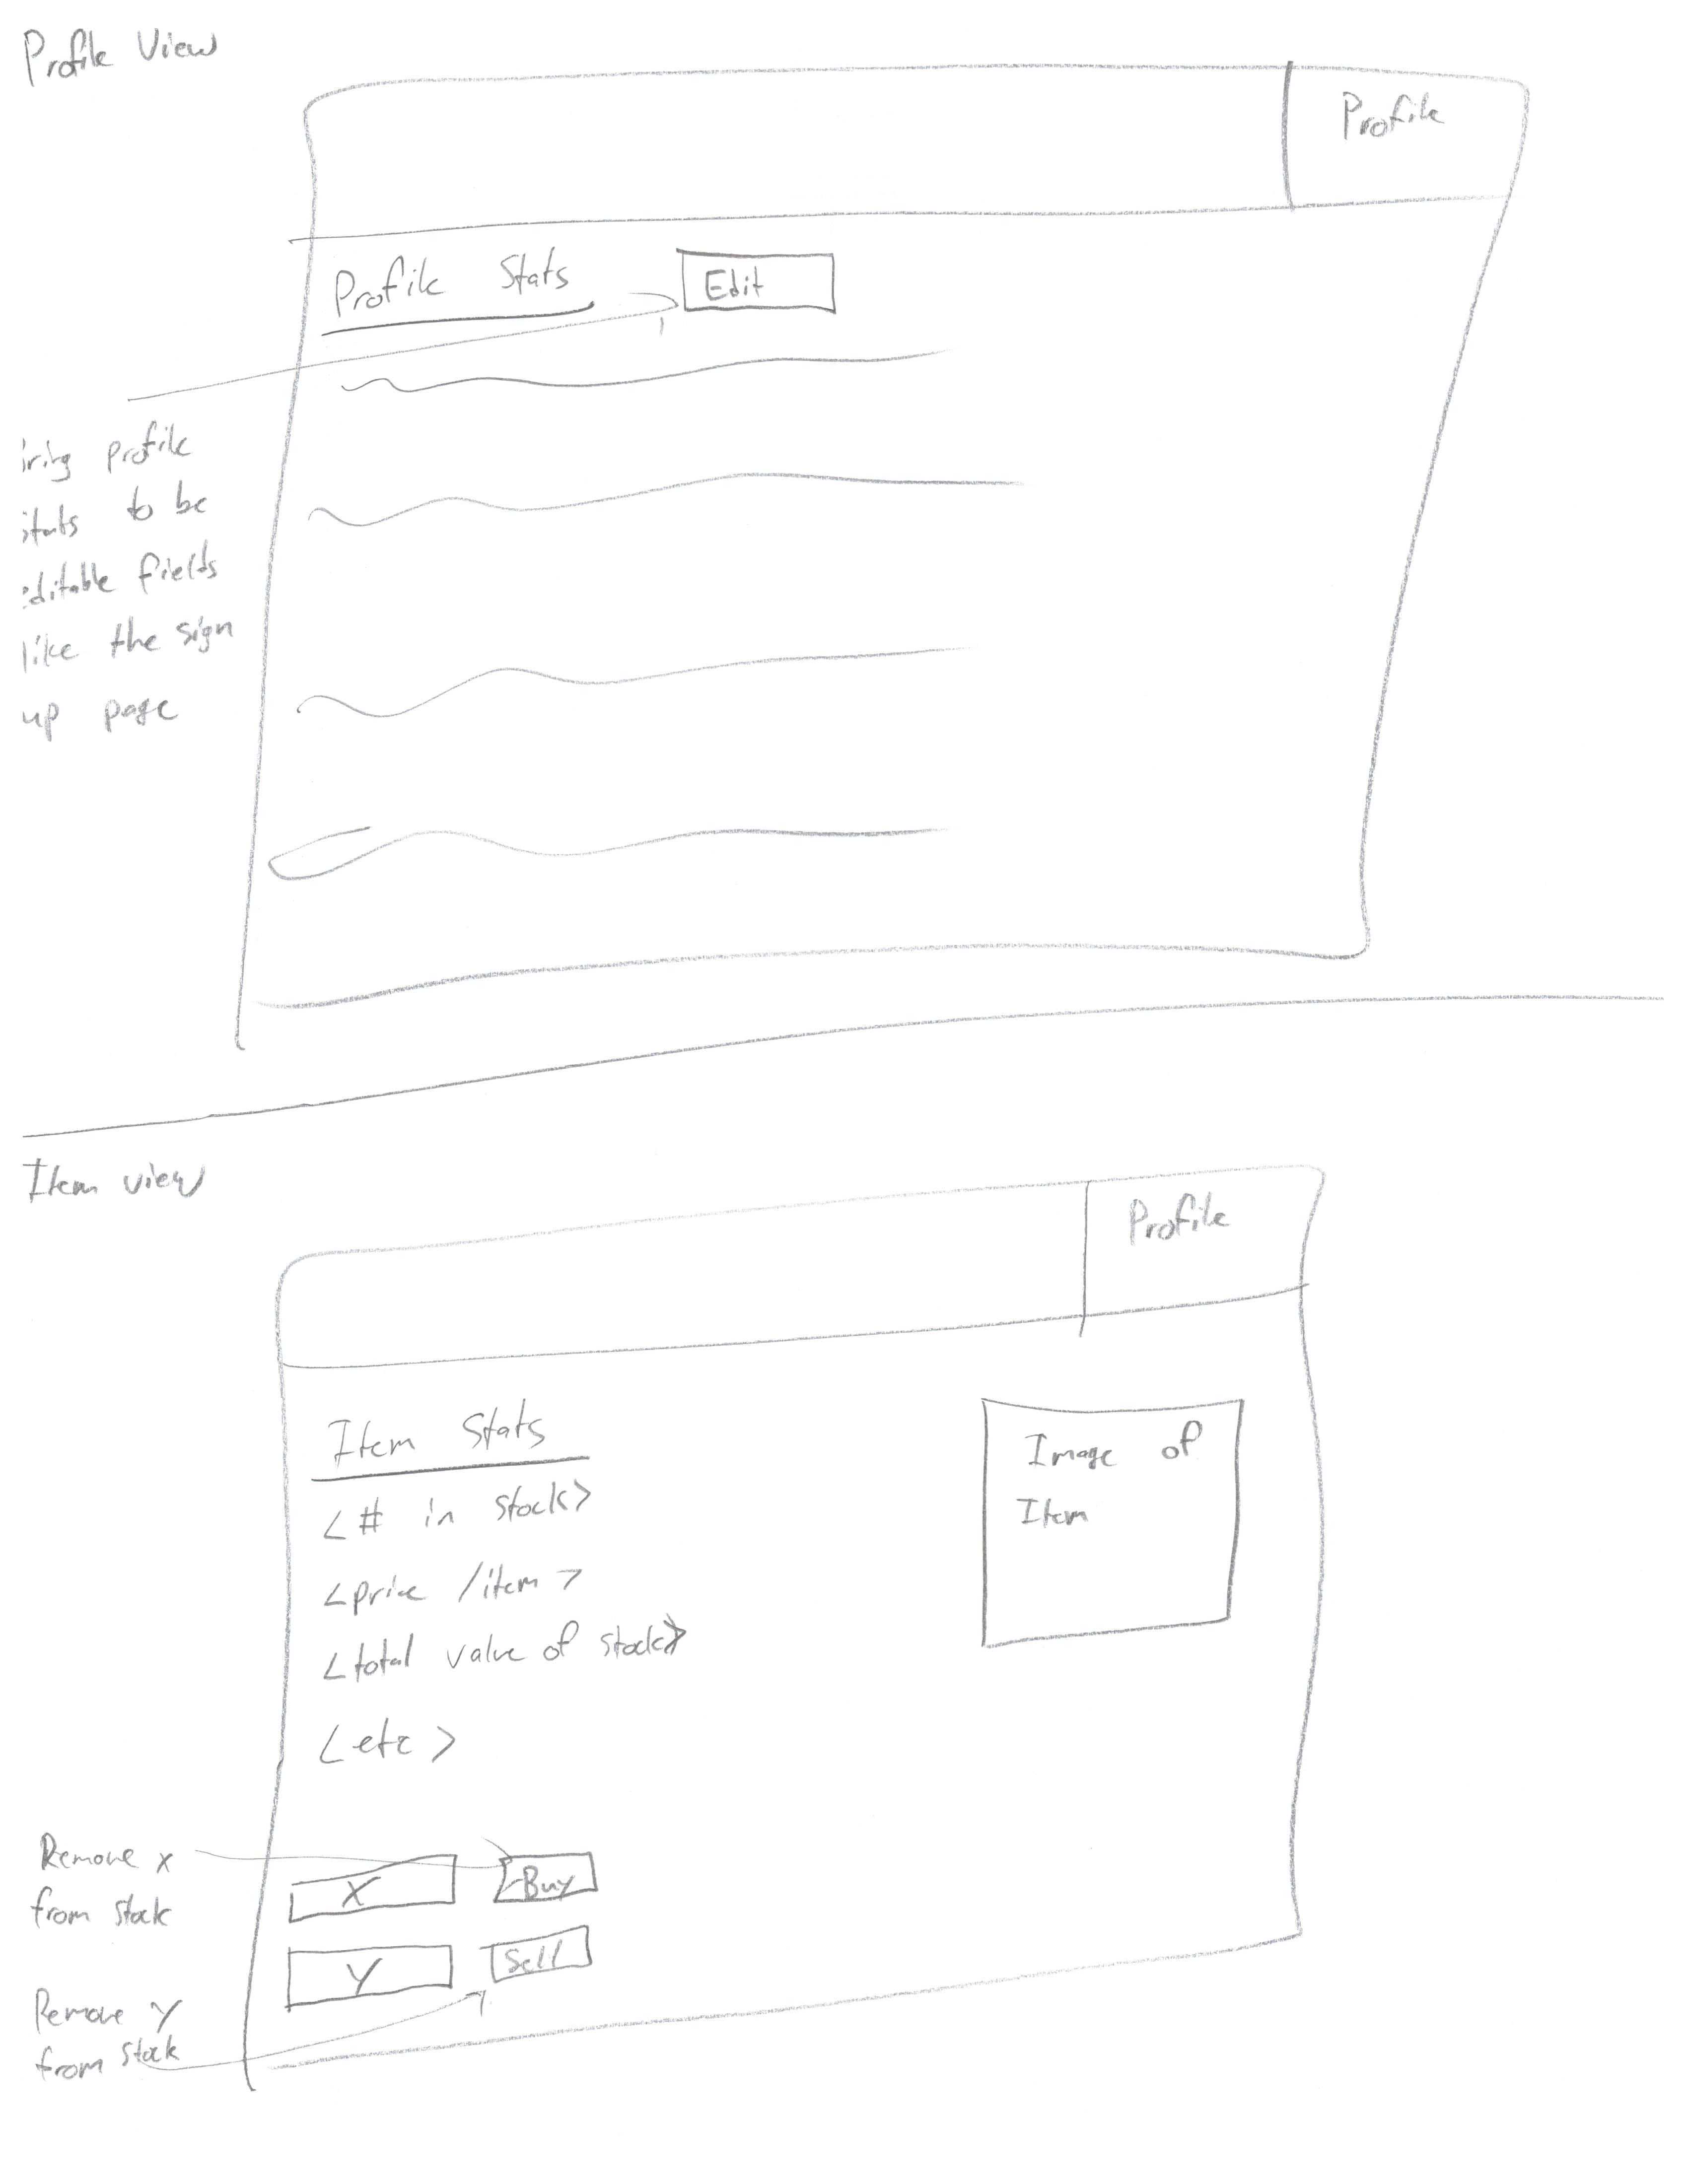 Profile View
Profile
Profile Stats
Edit
profile
to be
fields
like the sign
up page
Item view
Profile
Item Stats
Image of
Item
<# in stock>
<price /item >
<total value of stock>
<etc >
Remove x
from stock
X
Buy
Y
Sell
Remove y
from stock